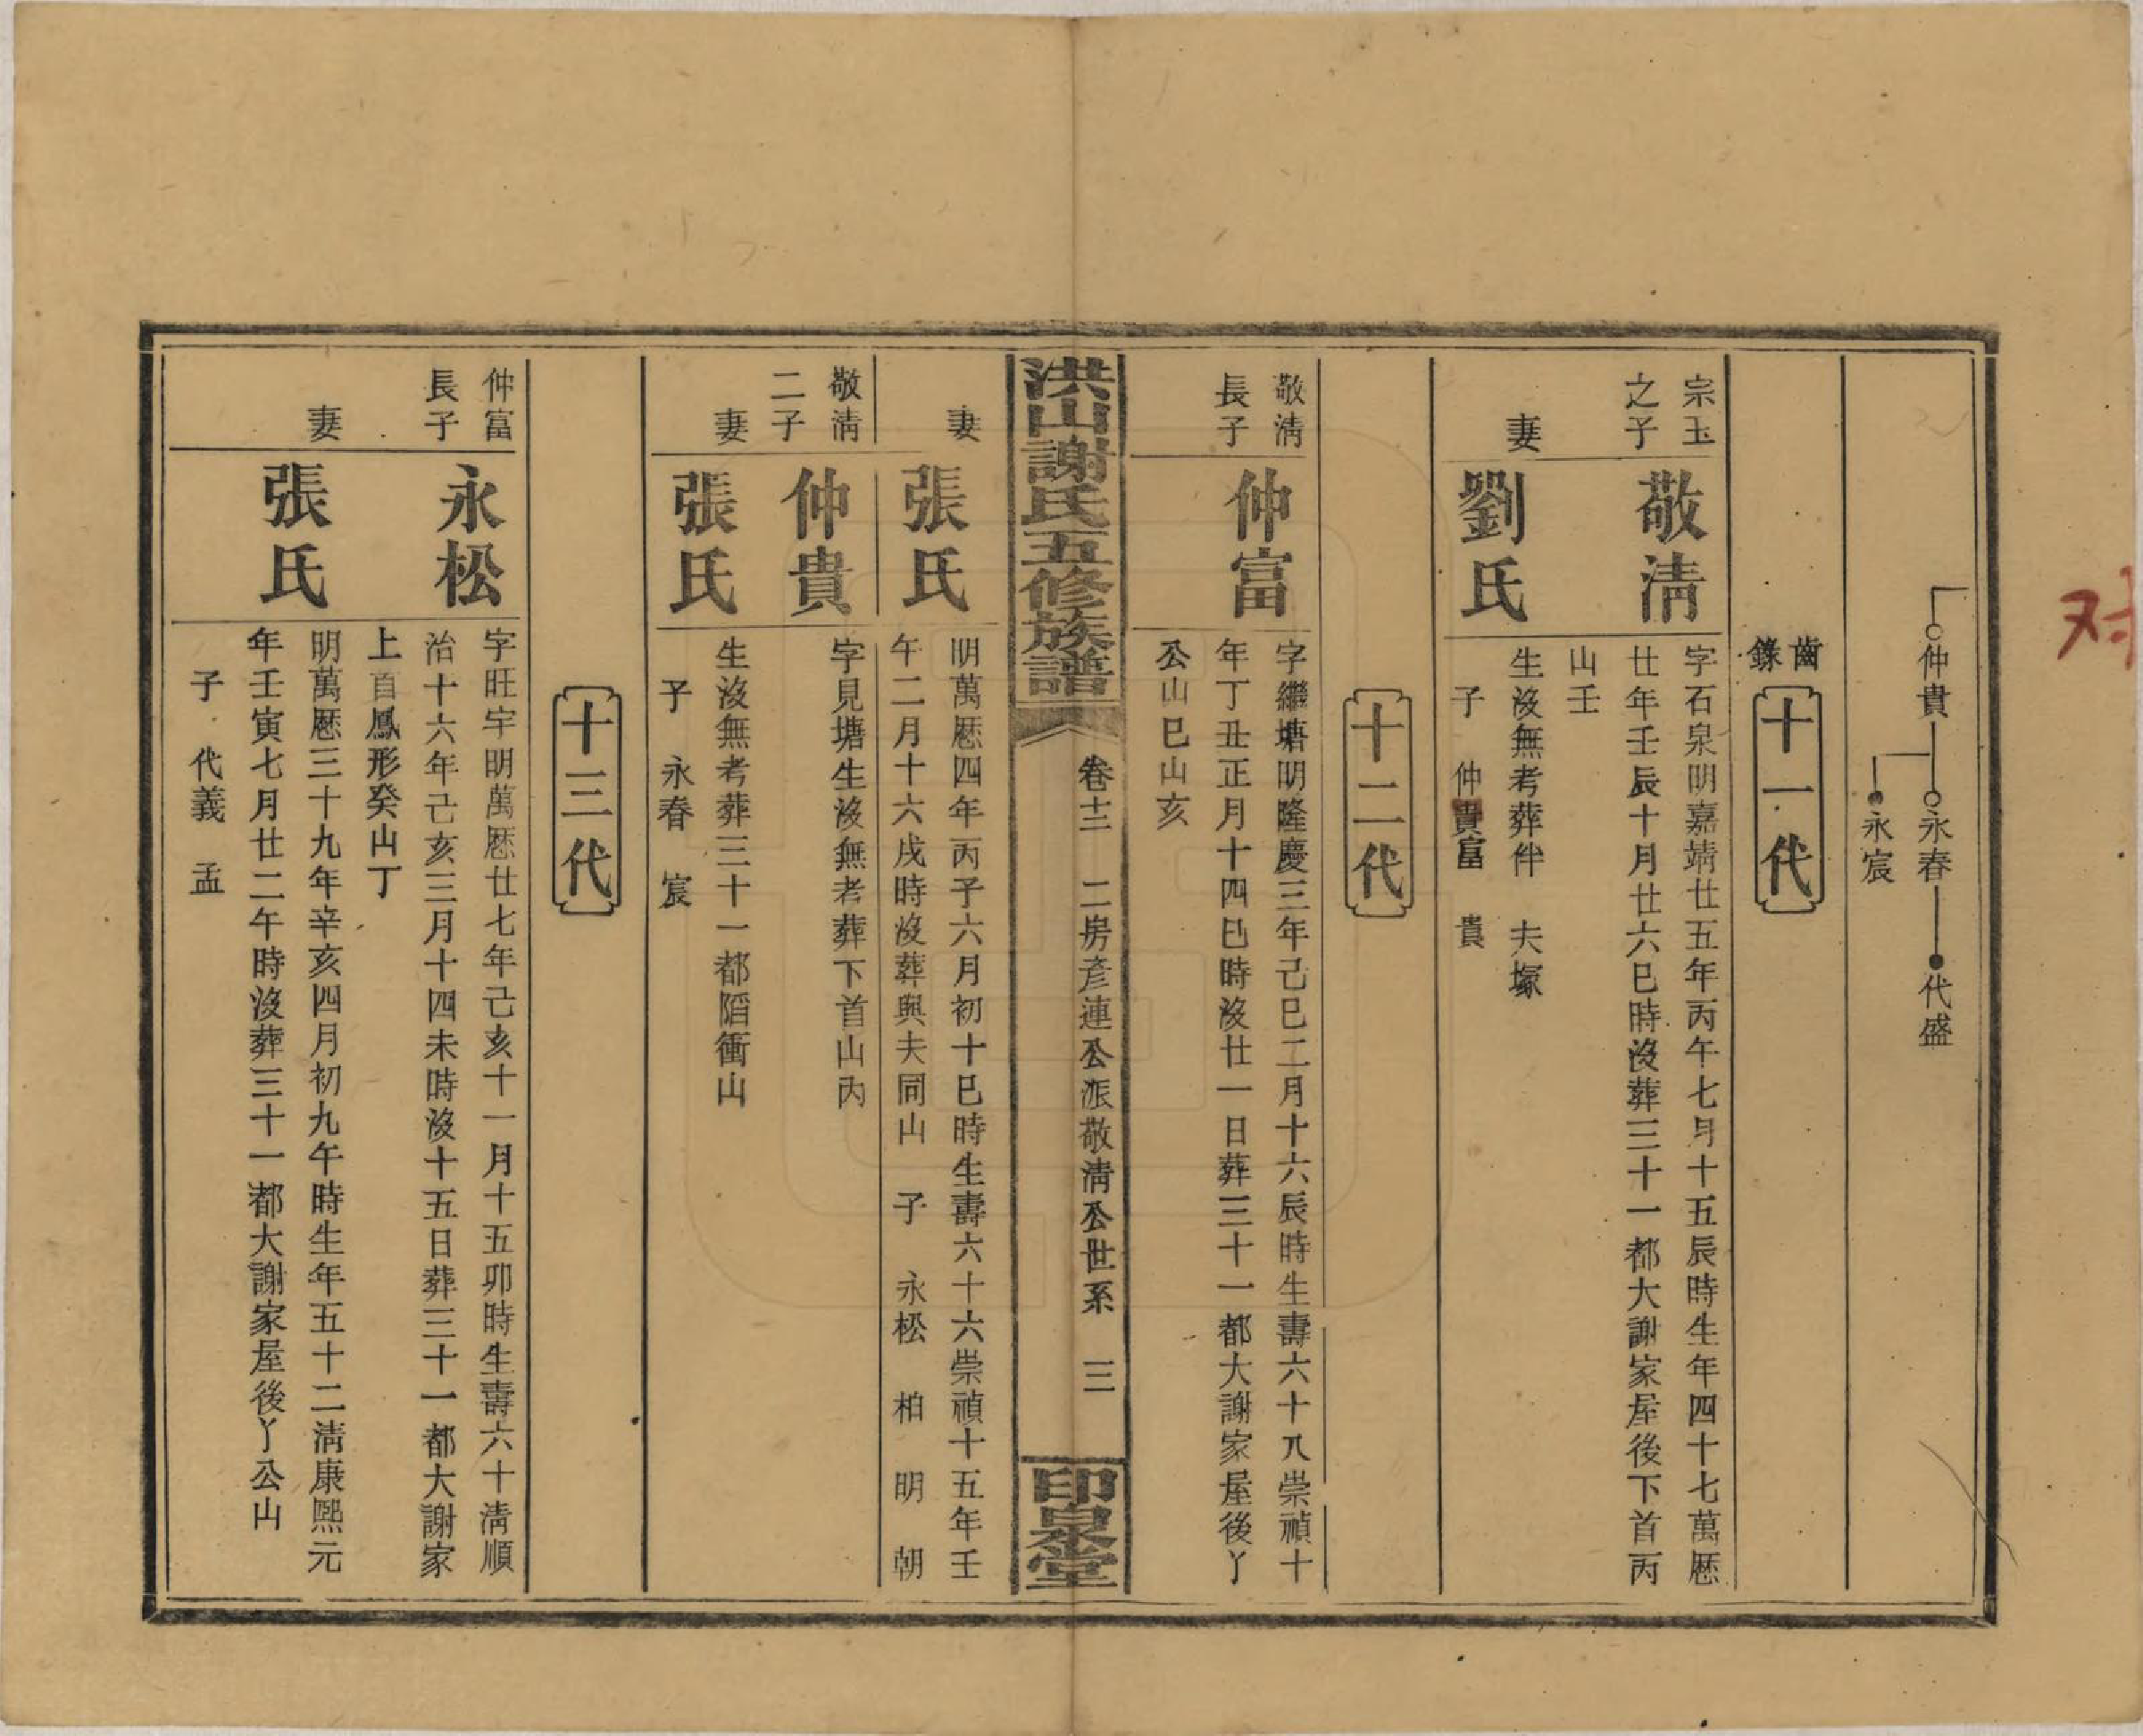 仲貴
永春
永宸
代盛
齒
錄
十一代
宗玉
之子
敬淸
字石泉明嘉靖廿五年丙午七月十五辰時生年四十七萬厯
廿年壬辰十月廿六巳時沒葬三十一都大謝家屋後下首丙
山壬
妻
劉氏
生沒無考葬伴 夫塚
子 仲富 貴
十二代
敬淸
長子
仲富
字繼塘明隆慶三年己巳二月十六辰時生壽六十八崇禎十
年丁丑正月十四巳時沒廿一日葬三十一都大謝家屋後丫
公山巳山亥
洪山謝氏五修族譜
卷十三 二房彥連公派敬淸公世系 三
印泉堂
妻
張氏
明萬厯四年丙子六月初十巳時生壽六十六崇禎十五年壬
午二月十六戌時沒葬與夫同山 子 永松 柏 明 朝
敬淸
二子
仲貴
字見塘生沒無考葬下首山丙
妻
張氏
生沒無考葬三十一都陷衝山
子 永春 宸
十三代
仲富
長子
永松
字旺宇明萬厯廿七年己亥十一月十五卯時生壽六十淸順
治十六年己亥三月十四未時沒十五日葬三十一都大謝家
上首鳳形癸山丁
妻
張氏
明萬厯三十九年辛亥四月初九午時生年五十二淸康熙元
年壬寅七月廿二午時沒葬三十一都大謝家屋後丫公山
子 代義 孟